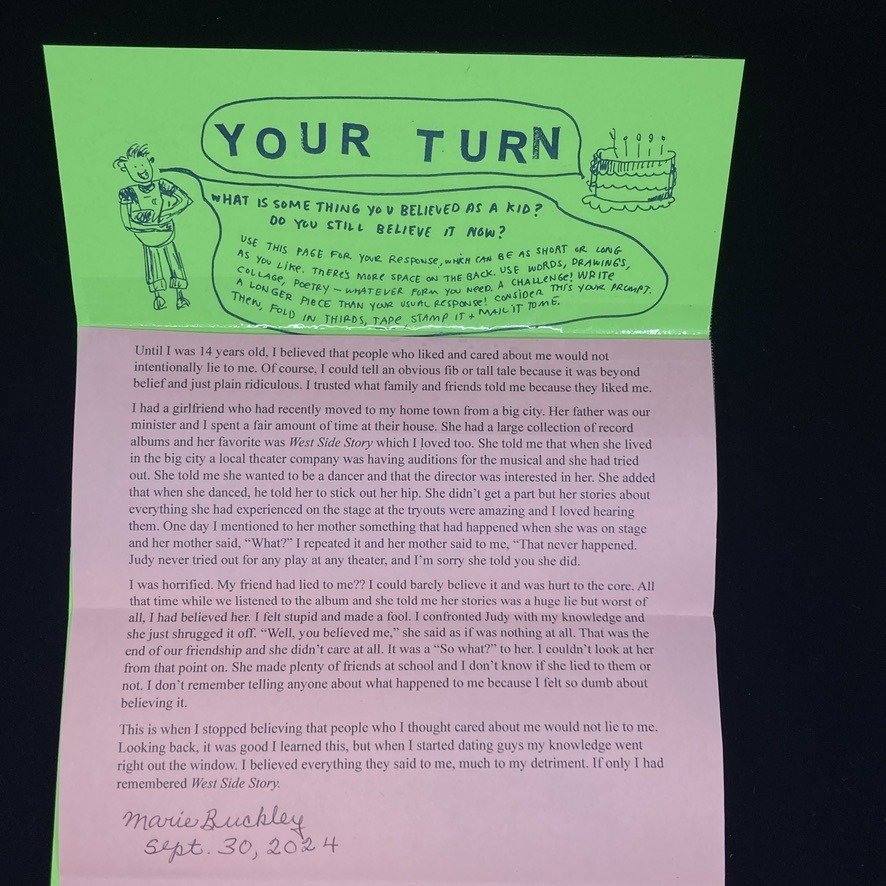 YOUR TURN
WHAT IS SOMETHING YOU BELIEVED AS A KID?
DO YOU STILL BELIEVE IT NOW?
USE THIS PAGE FOR YOUR RESPONSE, WHICH CAN BE AS SHORT OR LONG
AS YOU LIKE. THERE'S MORE SPACE ON THE BACK. USE WORDS, DRAWINGS,
COLLAGE, POETRY - WHATEVER FORM YOU NEED. A CHALLENGE! WRITE
A LONGER PIECE THAN YOUR USUAL RESPONSE! CONSIDER THIS YOUR PROMPT.
THEN, FOLD IN THIRDS, TAPE STAMP IT + MAIL IT TO ME.
Until I was 14 years old, I believed that people who liked and cared about me would not
intentionally lie to me. Of course, I could tell an obvious fib or tall tale because it was beyond
belief and just plain ridiculous. I trusted what family and friends told me because they liked me.
I had a girlfriend who had recently moved to my home town from a big city. Her father was our
minister and I spent a fair amount of time at their house. She had a large collection of record
albums and her favorite was West Side Story which I loved too. She told me that when she lived
in the big city a local theater company was having auditions for the musical and she had tried
out. She told me she wanted to be a dancer and that the director was interested in her. She added
that when she danced, he told her to stick out her hip. She didn't get a part but her stories about
everything she had experienced on the stage at the tryouts were amazing and I loved hearing
them. One day I mentioned to her mother something that had happened when she was on stage
and her mother said, "What?" I repeated it and her mother said to me, "That never happened.
Judy never tried out for any play at any theater, and I'm sorry she told you she did.
I was horrified. My friend had lied to me?? I could barely believe it and was hurt to the core. All
that time while we listened to the album and she told me her stories was a huge lie but worst of
all, I had believed her. I felt stupid and made a fool. I confronted Judy with my knowledge and
she just shrugged it off. "Well, you believed me," she said as if was nothing at all. That was the
end of our friendship and she didn't care at all. It was a "So what?" to her. I couldn't look at her
from that point on. She made plenty of friends at school and I don't know if she lied to them or
not. I don't remember telling anyone about what happened to me because I felt so dumb about
believing it.
This is when I stopped believing that people who I thought cared about me would not lie to me.
Looking back, it was good I learned this, but when I started dating guys my knowledge went
right out the window. I believed everything they said to me, much to my detriment. If only I had
remembered West Side Story.
Marie Buckley
Sept. 30, 2024